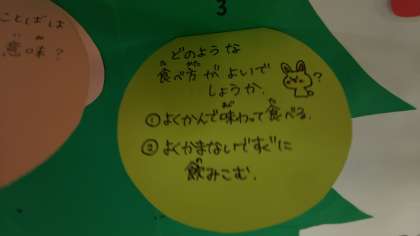 3
ことしばしは
意味?
どのような
食べ方がよいで
しょうか.
?
①よくかんで味わって食べる.
②よくかまないですぐに
飲みこむ.